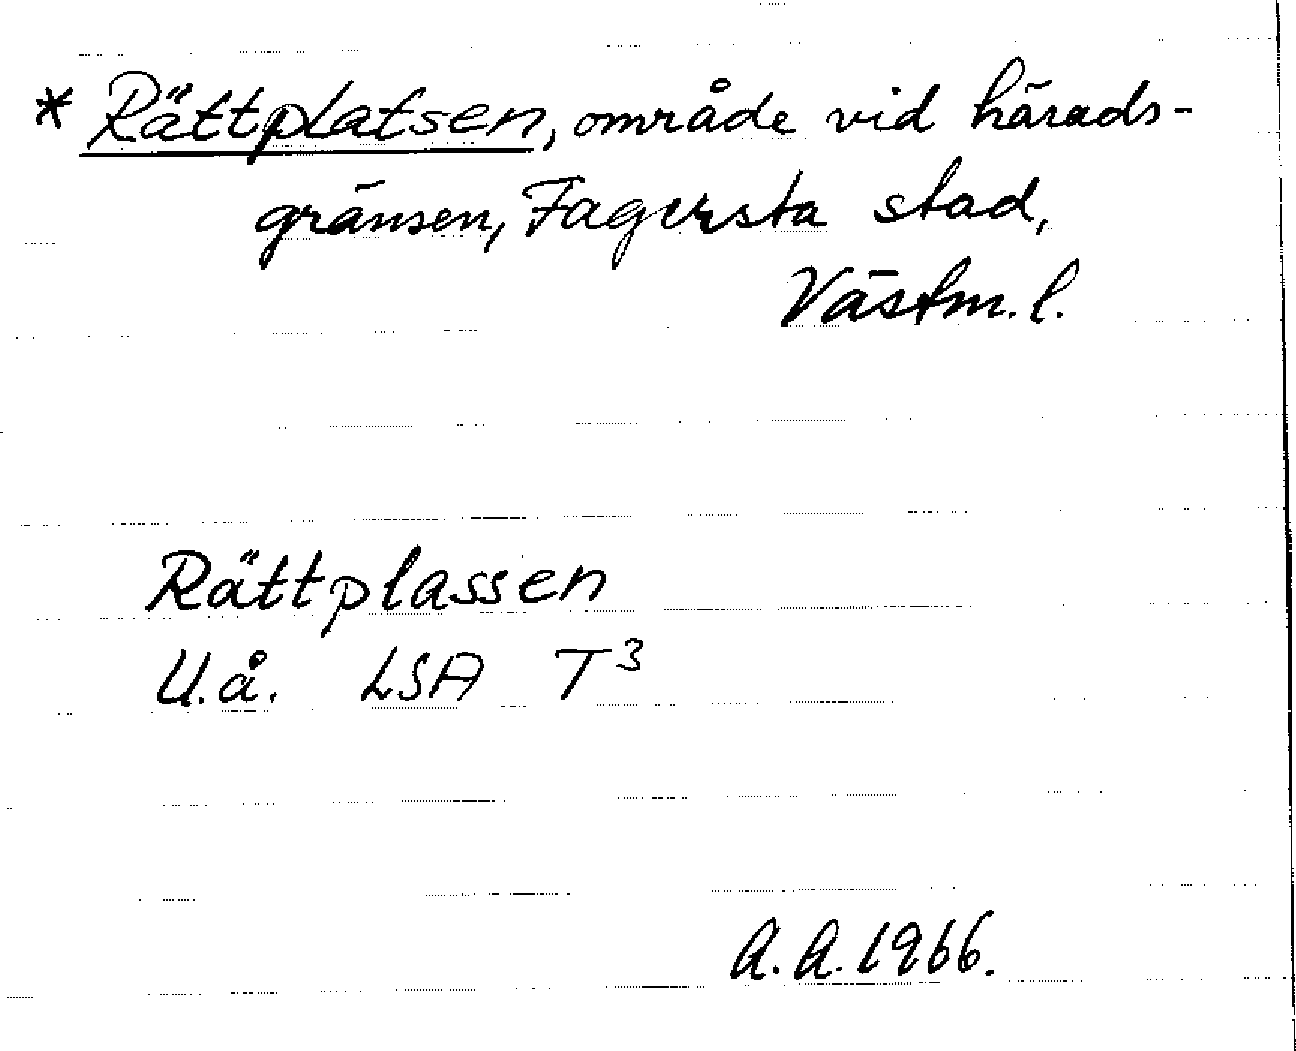 * Rättplatsen, område vid härads-
gränsen, Fagersta stad,
Västm. l.
Rättplassen
U.å. LSA T³
A.A. 1966.